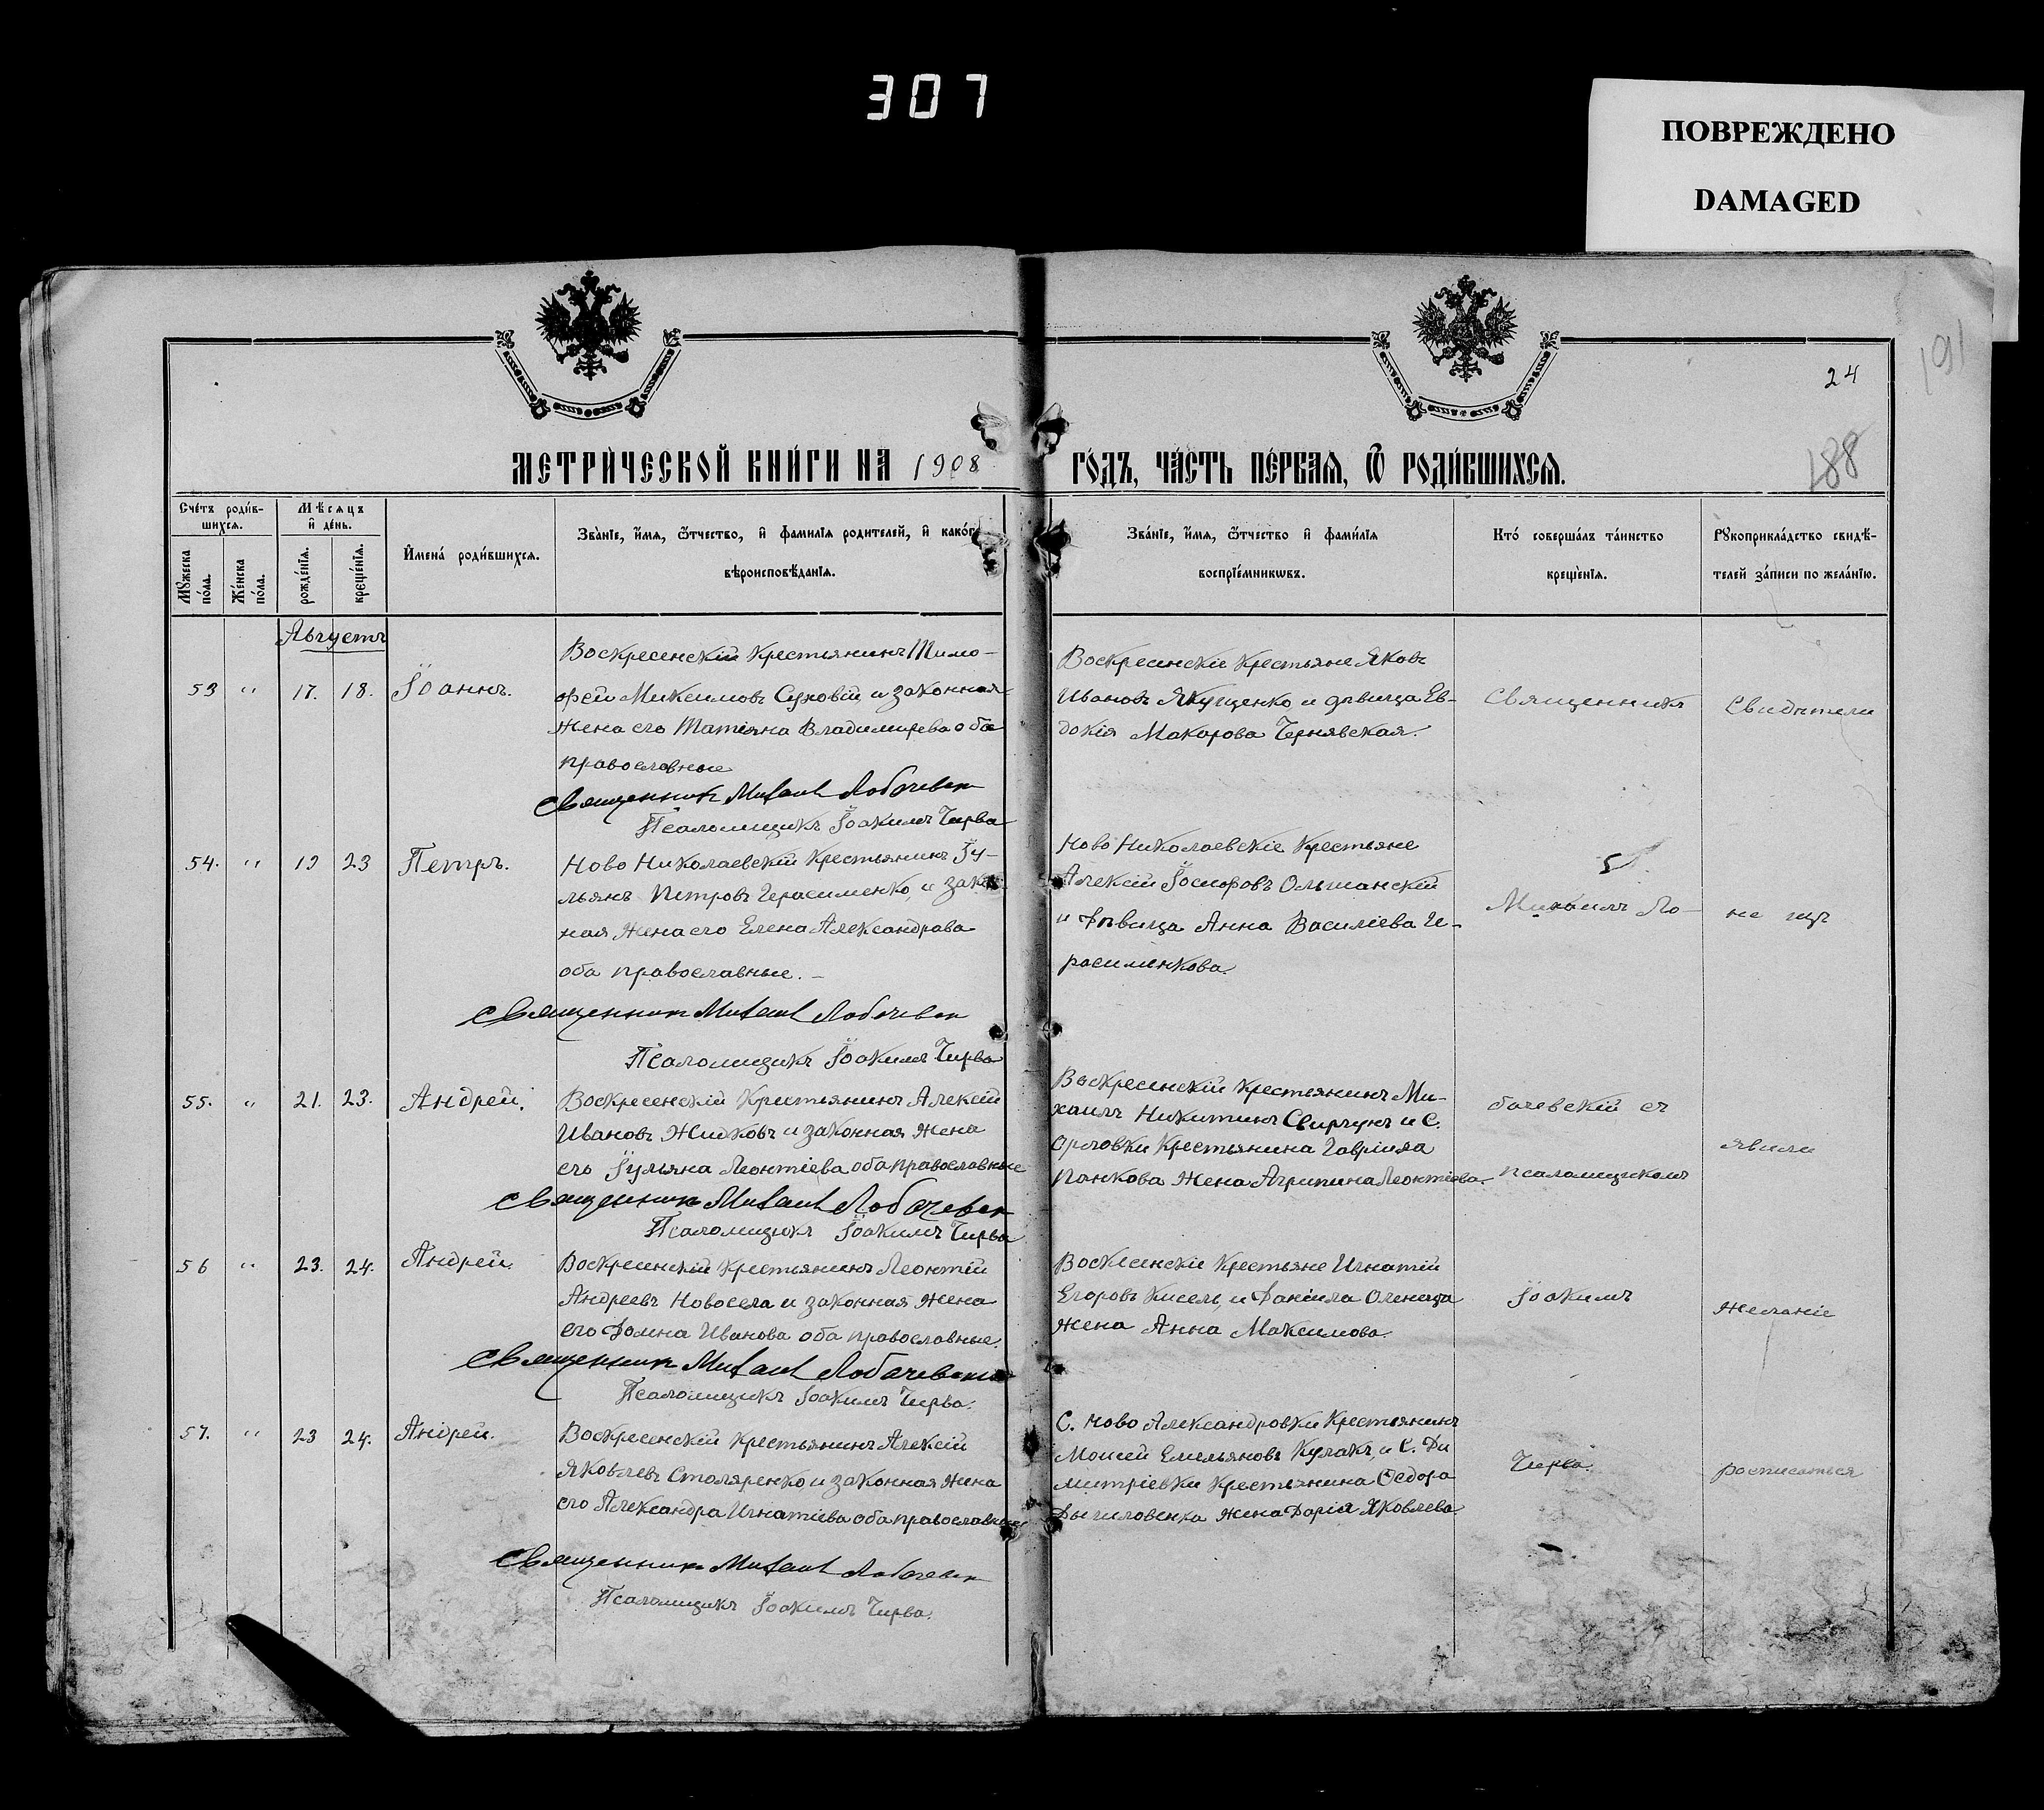 307
ПОВРЕЖДЕНО
DAMAGED
24
191
188
МЕТРИ́ЧЕСКОЙ КНИ́ГИ НА 1908 ГО́ДЪ, ЧА́СТЬ ПЕ́РВАЯ, Ѿ РОДИ́ВШИХСЯ.
Сче́тъ роди́в-
шихся.
Мѣ́сяцъ
и҆ де́нь.
Мꙋ́жеска по́ла.
Же́нска по́ла.
рожде́нїя.
креще́нїя.
И҆мена́ роди́вшихся.
Зва́нїе, и҆́мя, ѻ҆́тчество, и҆ фами́лїя роди́телей, и҆ како́гѡ
вѣроисповѣ́данїя.
Зва́нїе, и҆́мя, ѻ҆́тчество и҆ фами́лїя
воспрїе́мникѡвъ.
Кто́ соверша́лъ та́инство
креще́нїя.
Рꙋкоприкла́дство свидѣ́-
телей за́писи по жела́нїю.
Августъ
53 " 17. 18. Іоаннъ.
Воскресенскій крестьянинъ Тимо-
фей Максимовъ Суховій и законная
жена его Татіяна Владимірева оба
православные
Священник Михаил Лобачевск
Псаломщикъ Іоакимъ Чирва
Воскресенскіе крестьяне Яковъ
Ивановъ Якущенко и дѣвица Ев-
докія Макарова Чернявская.
Священникъ
Свидѣтели
54. " 19 23 Петръ.
Ново Николаевскій крестьянинъ Іу-
льянъ Петровъ Герасименко, и закон
ная жена его Елена Александрова
оба православные. –
Священник Михаил Лобачевск
Псаломщикъ Іоакимъ Чирва
Ново Николаевскіе крестьяне
Алексій Іосифовъ Ольшанскій
и дѣвица Анна Василіева Ге-
расименкова.
Михаилъ Ло-
не изъ
55. " 21. 23. Андрей.
Воскресенскій крестьянинъ Алексій
Ивановъ Жидковъ и законная жена
его Іульяна Леонтіева оба православные
Священник Михаил Лобачевск
Псаломщикъ Іоакимъ Чирва
Воскресенскій крестьянинъ Ми-
хаилъ Никитинъ Свиргунъ и С.
Орловки крестьянина Гавріила
Панкова жена Агрипина Леонтіева.
бачевскій съ
псаломщикомъ
явили
56 " 23. 24. Андрей.
Воскресенскій крестьянинъ Леонтій
Андреевъ Новосела и законная жена
его Домна Иванова оба православные.
Священник Михаил Лобачевскій
Псаломщикъ Іоакимъ Чирва.
Воскесенскіе крестьяне Игнатій
Егоровъ Кисель, и Даніила Оленица
жена Анна Максимова.
Іоакимъ
желаніе
57. " 23 24. Андрей.
Воскресенскій крестьянинъ Алексій
Яковлевъ Столяренко и законная жена
его Александра Игнатіева оба православные
Священник Михаил Лобачевск
Псаломщикъ Іоакимъ Чирва.
С. Ново Александровки крестьянинъ
Моисей Емельяновъ Кулакъ, и С. Ди
митріевки крестьянина Ѳедора
жена Дарія Яковлева.
Чирва.
росписаться